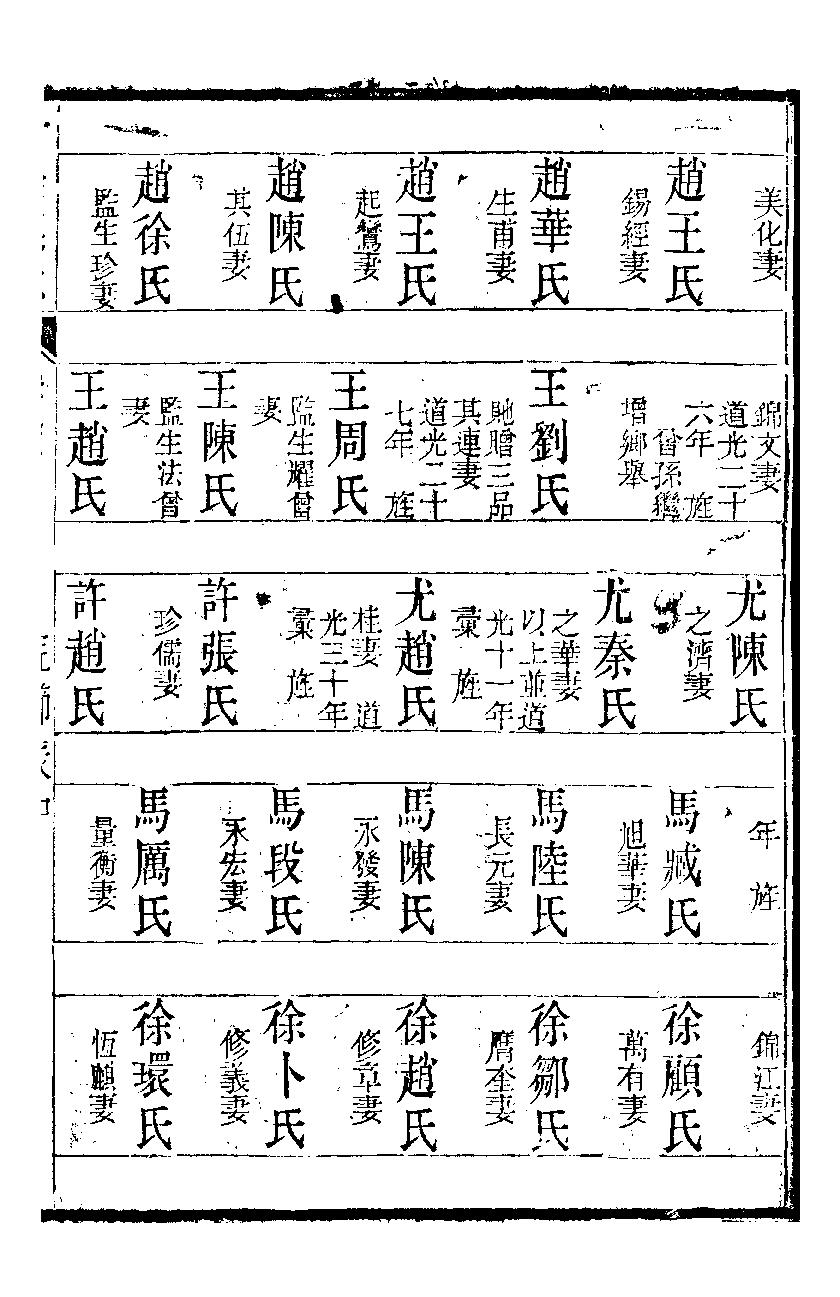 美化妻
趙王氏
錫經妻
趙華氏
生甫妻
趙王氏
起鶯妻
趙陳氏
其伍妻
趙徐氏
監生珍妻
錦文妻
道光二十
六年 旌
曾孫繼
增鄉舉
王劉氏
貤贈三品
其連妻
道光二十
七年 旌
王周氏
監生耀曾
妻
王陳氏
監生法曾
妻
王趙氏
尤陳氏
之濟妻
尤秦氏
之華妻
以上並道
光十一年
彙 旌
尤趙氏
桂妻 道
光三十年
彙 旌
許張氏
珍儒妻
許趙氏
年 旌
馬臧氏
旭華妻
馬陸氏
長元妻
馬陳氏
永發妻
馬段氏
永宏妻
馬厲氏
量衡妻
錦江妻
徐顧氏
萬有妻
徐鄒氏
膺奎妻
徐趙氏
修章妻
徐卜氏
修義妻
徐環氏
恆麒妻